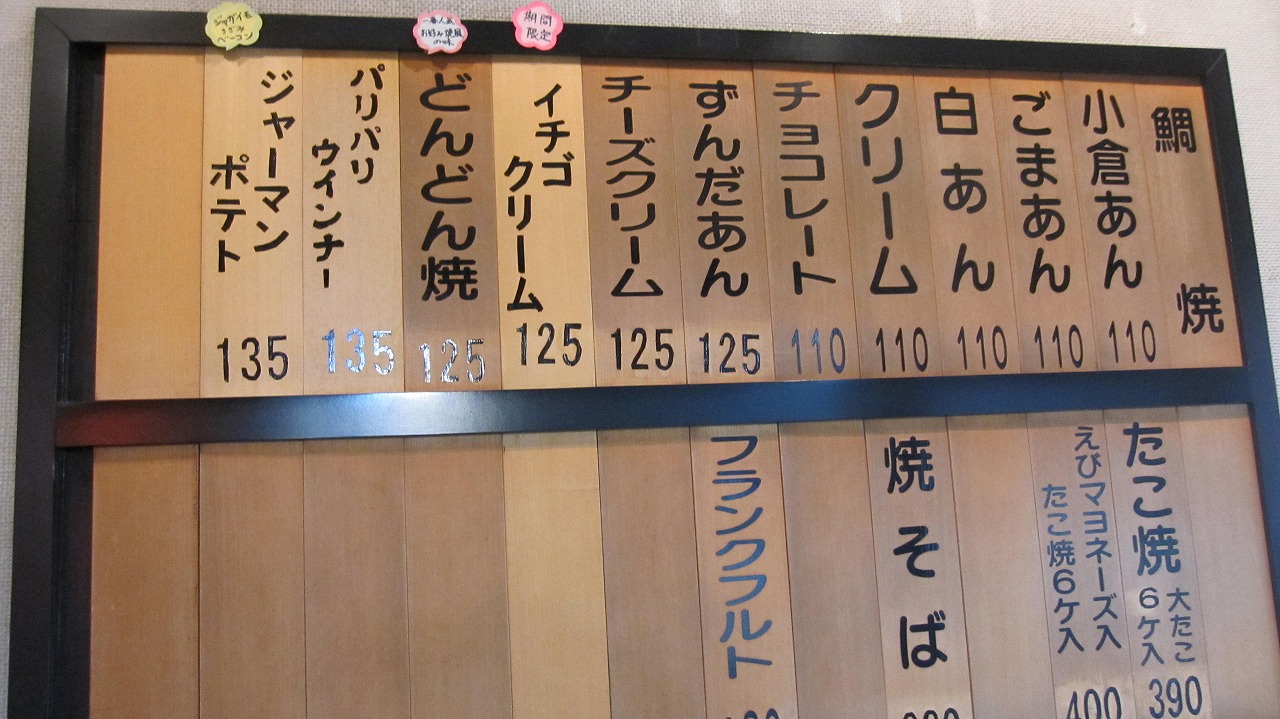 鯛焼
小倉あん
110
ごまあん
110
白あん
110
クリーム
110
チョコレート
110
ずんだあん
125
チーズクリーム
125
期間
限定
イチゴ
クリーム
125
一番人気
お好み焼風
の味
どんどん焼
125
パリパリ
ウインナー
135
ジャガイモ
ベーコン
ジャーマン
ポテト
135
たこ焼
大たこ
6ケ入
390
えびマヨネーズ入
たこ焼6ケ入
400
焼そば
フランクフルト